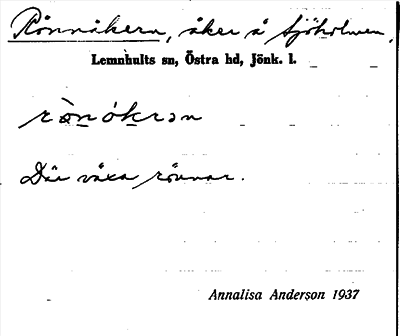 Rönnåkern, åker å Sjöholmen,
Lemnhults sn, Östra hd, Jönk. l.
rònókrən
Där växa rönnar.
Annalisa Anderson 1937